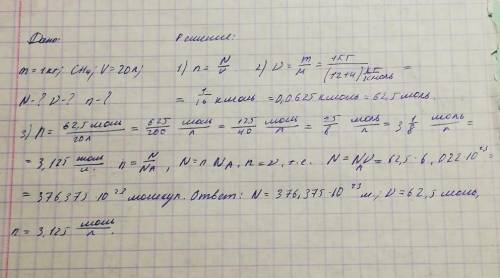 Дано: Решение:
m = 1 кг; CH₄; V = 20 л; 1) n = N/V 2) ν = m/μ = 1 кг/(12+4) кг/кмоль =
N-? ν-? n-? = 1/16 кмоль = 0,0625 кмоль = 62,5 моль.
3) n = 62,5 моль/20 л = 625/200 моль/л = 125/40 моль/л = 25/8 моль/л = 3 1/8 моль/л =
= 3,125 моль/л. n = N/NA, N = n NA, n = ν, т.е. N = NA ν = 62,5 · 6,022 · 10²³ =
= 376,375 · 10²³ молекул. Ответ: N = 376,375 · 10²³ м.; ν = 62,5 моль,
n = 3,125 моль/л.